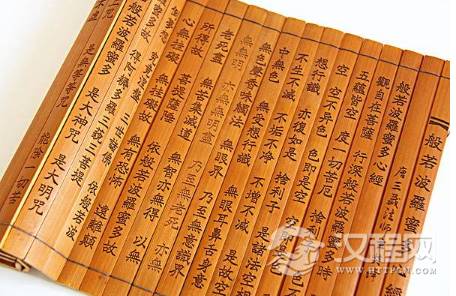 般若波羅蜜
般若波羅蜜多心經 唐三藏法師
觀自在菩薩 行深般若波羅蜜多時
五蘊皆空 度一切苦厄 舍利
空 空不異色 色即是空 空即是
想行識 亦復如是 舍利子 是諸法空相
不生不滅 不垢不淨 不增不減 是故空
中無色 無受想行識 無眼耳鼻舌身意
無色聲香味觸法 無眼界 乃至無意識界
無無明 亦無無明盡 乃至無老死 亦無
老死盡 無苦集滅道 無智亦無得 以無
所得故 菩提薩埵 依般若波羅蜜多故
心無罣礙 無罣礙故 無有恐怖 遠離顛
三世諸佛 依般若波
得阿耨多羅三藐三菩提
是大神咒 是大明咒
汉程网
HTTPCN.COM